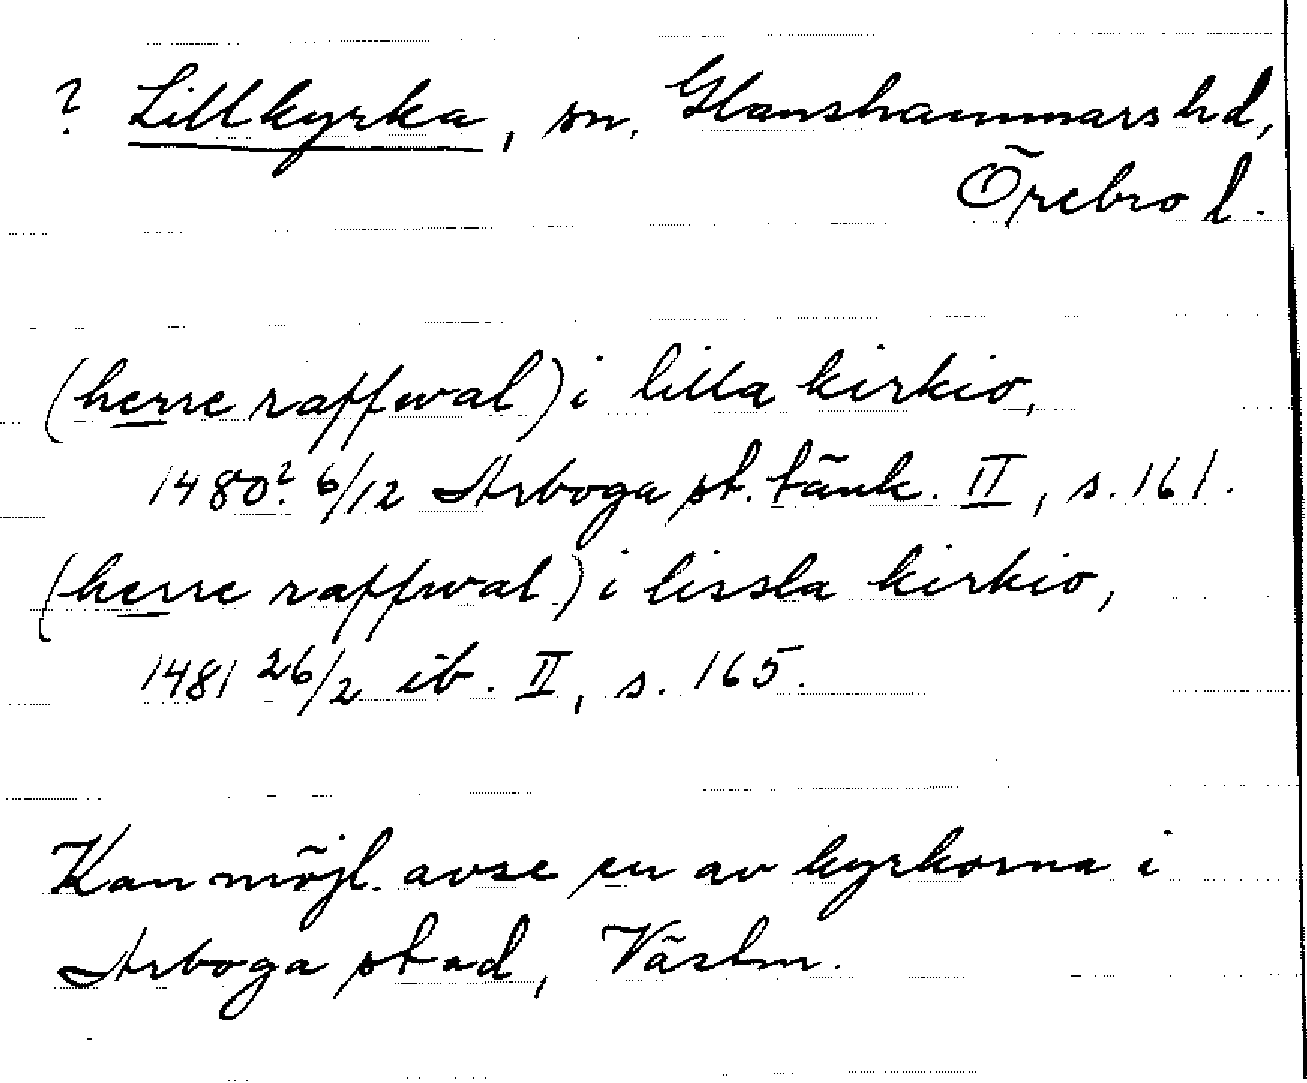 ? Lillkyrka, sn, Glanshammars hd,
Örebro l.
(herre raffwal) i lilla kirkio,
1480? 6/12 Arboga st. tänk. II, s. 161.
(herre raffwal) i lissla kirkio,
1481 26/2 ib. II, s. 165.
Kan möjl. avse en av kyrkorna i
Arboga stad, Västm.